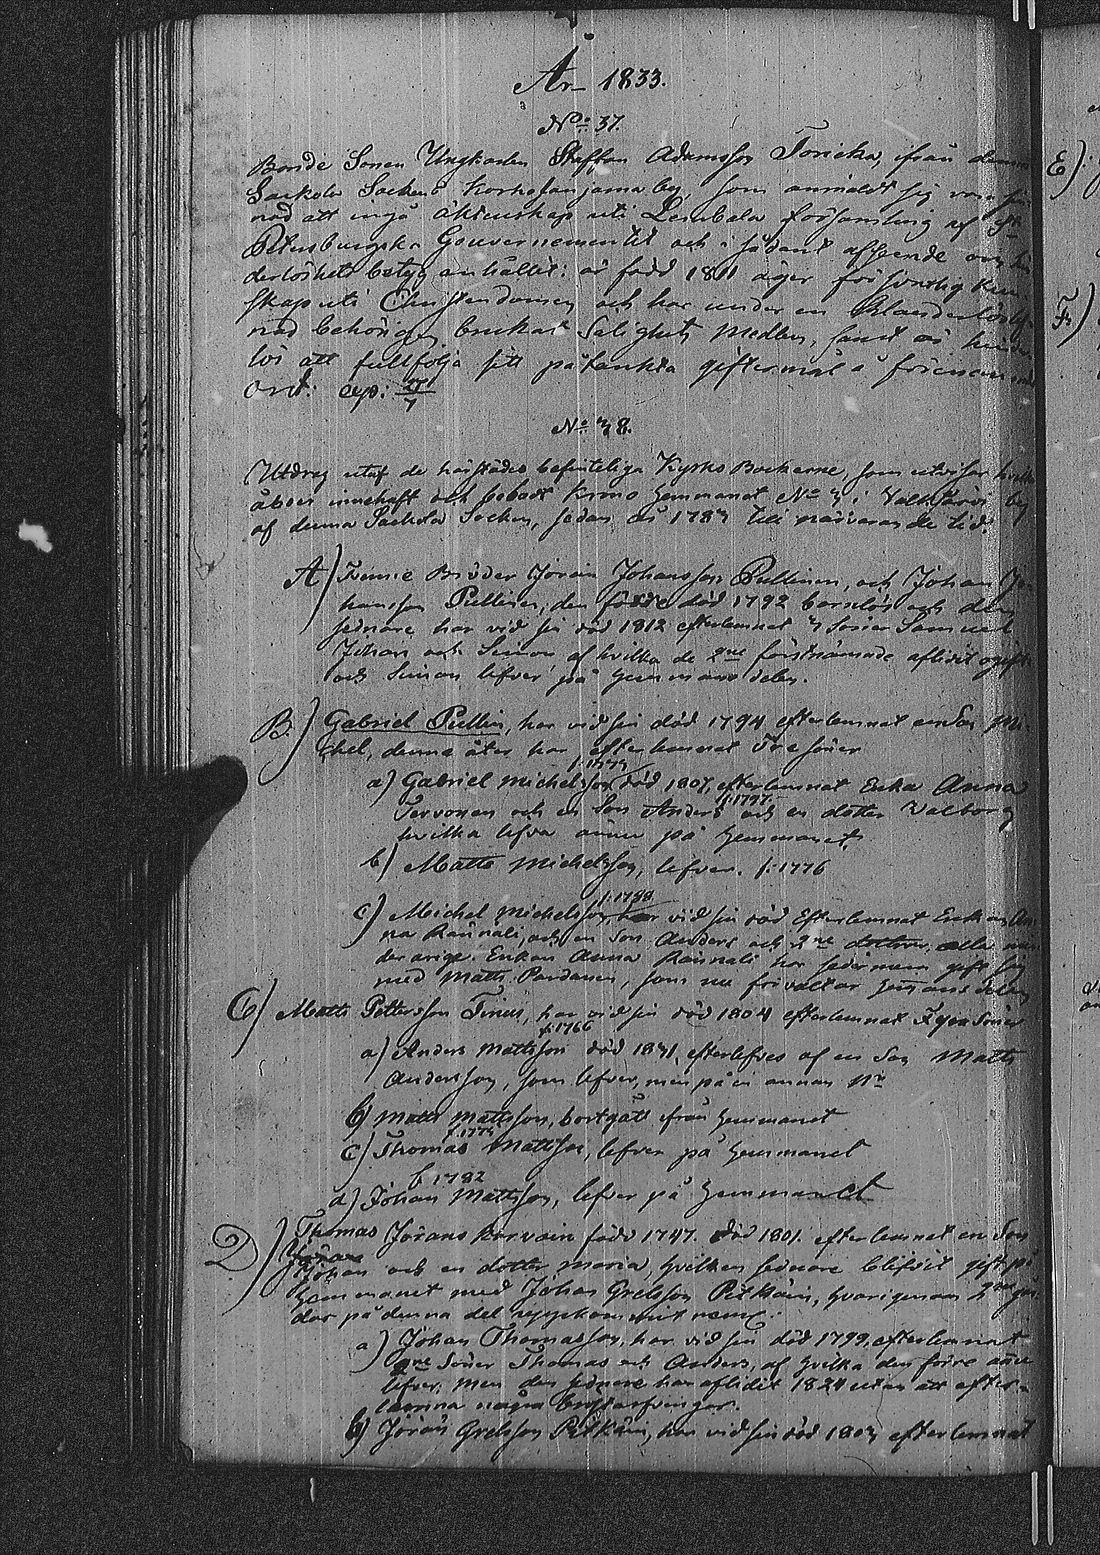 År 1833.
No 37.
Bonde Sonen Ungkarlen Staffan Adamsson Toricka, ifrån denna
Sackola Sockens Korhosanjama by, som anmäldt sig vara
nad att ingå äktenskap uti Lembala församling af St
Petersburgska Gouvernementet och i sådant afseende om
derlöshets betyg anhållit: är född 1811 äger försvarlig kun
skap uti Christendomen och har under en klanderlös
nad behörigen brukat Salighets Medlen, samt är hinder
lös att fullfölja sitt påtänkta giftermål å
ort: exp:
No 38.
Utdrag utaf de härstädes befinteliga Kyrko Böckerne, som utvisar hvilka
åboer innehaft och bebodt Krono Hemmanet No 3 i Valkjärvi by
af denna Sackola Socken, sedan år 1783 till närvarande tid.
A) Tvenne Bröder Jöran Johansson Pullinen, och Johan Jo-
hansson Pullinen, den förre död 1792 barnlös och den
sednare har vid sin död 1812 efterlemnat 3 Söner Samuel
Johan och Simon af hvilka de 2ne förstnämnde aflidit ogift
och Simon lefver på Hemmans delen.
B.) Gabriel Pullin, har vid sin död 1794 efterlemnat en Son Mi-
chel, denne åter har efterlemnat Tre söner
f: 1773
a) Gabriel Michelsson död 1807, efterlemnat Enka Anna
f: 1797
Tervonen och en Son Anders och en dotter Valborg
hvilka lefva ännu på Hemmanet.
b) Matts Michelsson, lefver. f: 1776
f: 1788
c) Michel Michelsson, har vid sin död Efterlemnat Enkan An
na Räinäli, och en Son Anders och 2ne döttrar, alla min
der årige. Enkan Anna Räinäli har sedermera gift sig
med Matts Pardanen, som nu förvaltar Hemmans delen
C) Matts Pettersson Tinus, har vid sin död 1804 efterlemnat Fyra Söner
f: 1766
a) Anders Mattsson död 1831, efterlefves af en Son Matts
Andersson, som lefver, men på en annan No
b) Matts Mattsson, bortgått ifrån Hemmanet
f. 1774
c) Thomas Mattsson, lefver på Hemmanet
f 1782
d) Johan Mattsson, lefver på Hemmanet
D) Thomas Jörans Korvain född 1747. död 1801. efterlemnat en Son
Johan och en dotter Maria, hvilken sednare blifvit gift på
Hemmanet med Johan Grelsson Pitkäin, hvarigenom 2ne går
dar på denna del uppkommit neml:
a) Johan Thomasson, har vid sin död 1799, efterlemnat
2ne Söner Thomas och Anders, af hvilka den förre ännu
lefver, men den sednare har aflidit 1824 utan att efter-
lämna några bröstarfvingar.
b) Jöran Grelsson Pitkäin, har vid sin död 1803 efterlemnat
E)
F)